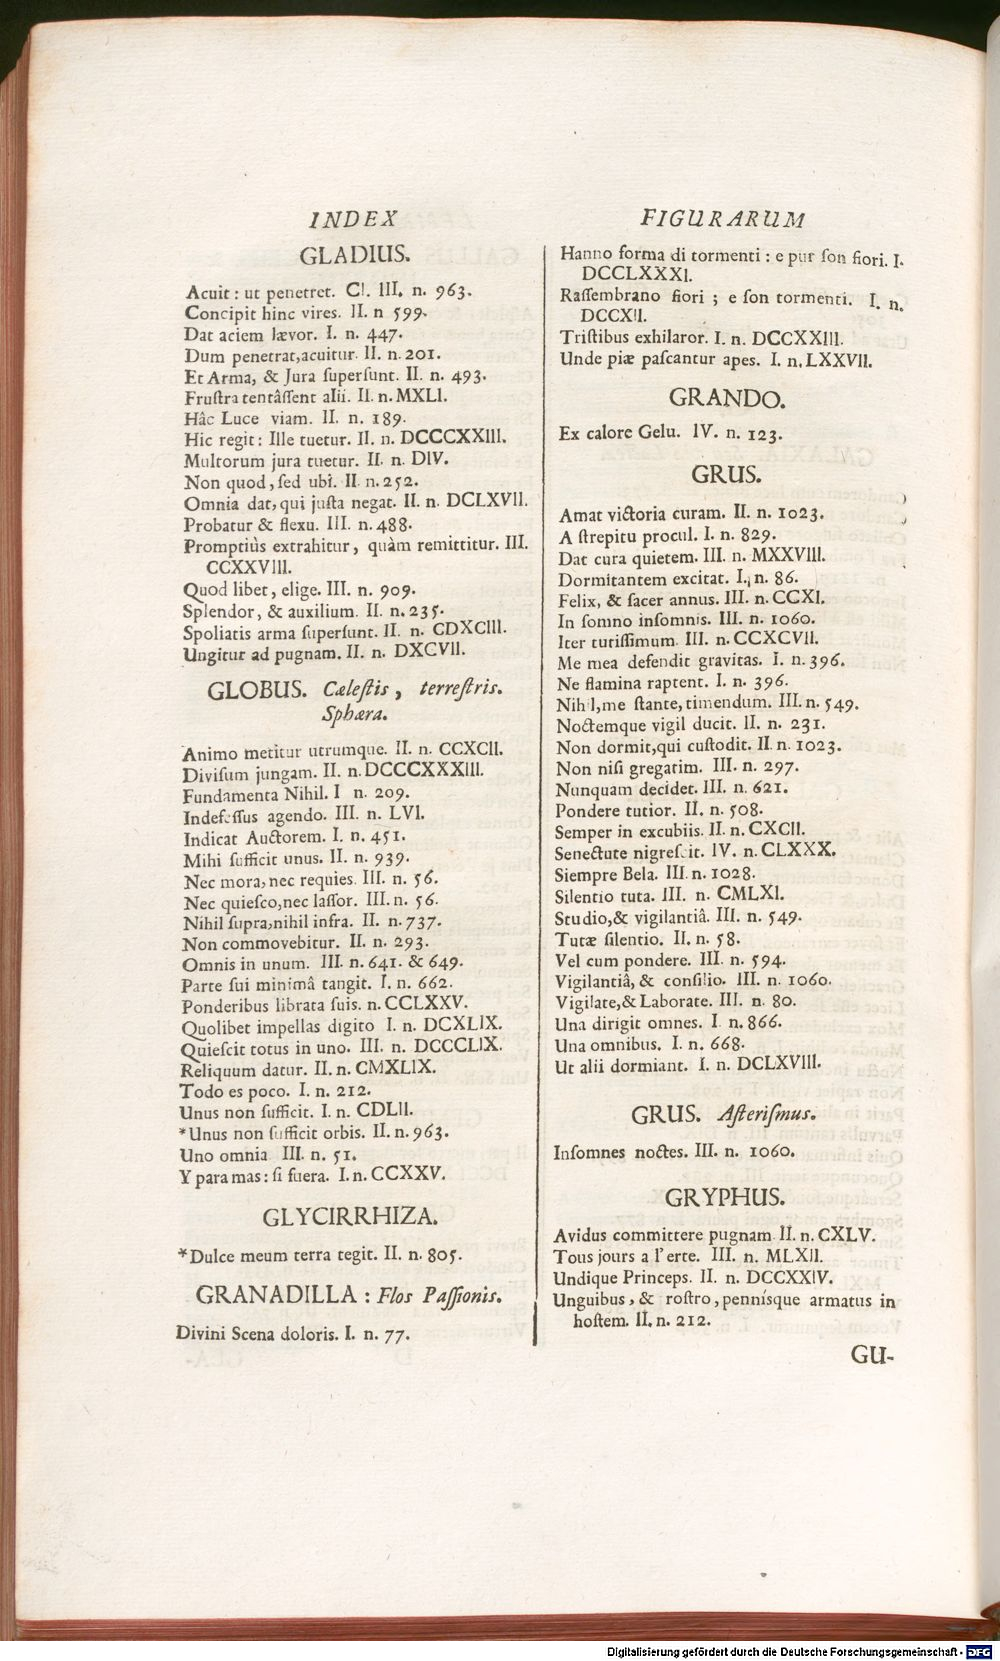 INDEX
GLADIUS.
Acuit : ut penetret. Cl. III. n. 963.
Concipit hinc vires. II. n 599.
Dat aciem lævor. I. n. 447.
Dum penetrat,acuitur. II. n. 201.
Et Arma, & Jura superſunt. II. n. 493.
Fruſtra tentâſſent alii. II. n. MXLI.
Hâc Luce viam. II. n. 189.
Hic regit : Ille tuetur. II. n. DCCCXXIII.
Multorum jura tuetur. II. n. DIV.
Non quod, ſed ubi. II. n. 252.
Omnia dat, qui juſta negat. II. n. DCLXVII.
Probatur & flexu. III. n. 488.
Promptiùs extrahitur, quàm remittitur. III.
CCXXVIII.
Quod libet, elige. III. n. 909.
Splendor, & auxilium. II. n. 235.
Spoliatis arma ſuperſunt. II. n. CDXCIII.
Ungitur ad pugnam. II. n. DXCVII.
GLOBUS. Cæleſtis, terreſtris.
Sphæra.
Animo metitur utrumque. II. n. CCXCII.
Diviſum jungam. II. n. DCCCXXXIII.
Fundamenta Nihil. I n. 209.
Indefeſſus agendo. III. n. LVI.
Indicat Auctorem. I. n. 451.
Mihi ſufficit unus. II. n. 939.
Nec mora, nec requies. III. n. 56.
Nec quieſco, nec laſſor. III. n. 56.
Nihil ſupra,nihil infra. II. n. 737.
Non commovebitur. II. n. 293.
Omnis in unum. III. n. 641. & 649.
Parte ſui minimâ tangit. I. n. 662.
Ponderibus librata ſuis. n. CCLXXV.
Quolibet impellas digito I. n. DCXLIX.
Quieſcit totus in uno. III. n. DCCCLIX.
Reliquum datur. II. n. CMXLIX.
Todo es poco. I. n. 212.
Unus non ſufficit. I. n. CDLII.
*Unus non ſufficit orbis. II. n. 963.
Uno omnia III. n. 51.
Y para mas : ſi fuera. I. n. CCXXV.
GLYCIRRHIZA.
*Dulce meum terra tegit. II. n. 805.
GRANADILLA : Flos Paſſionis.
Divini Scena doloris. I. n. 77.
FIGURARUM
Hanno forma di tormenti : e pur ſon fiori. I.
DCCLXXXI.
Raſſembrano fiori ; e ſon tormenti. I. n.
DCCXII.
Triſtibus exhilaror. I. n. DCCXXIII.
Unde piæ paſcantur apes. I. n. LXXVII.
GRANDO.
Ex calore Gelu. IV. n. 123.
GRUS.
Amat victoria curam. II. n. 1023.
A ſtrepitu procul. I. n. 829.
Dat cura quietem. III. n. MXXVIII.
Dormitantem excitat. I. n. 86.
Felix, & ſacer annus. III. n. CCXI.
In ſomno inſomnis. III. n. 1060.
Iter tutiſſimum. III. n. CCXCVII.
Me mea defendit gravitas. I. n. 396.
Ne flamina raptent. I. n. 396.
Nihil,me ſtante, timendum. III. n. 549.
Noctemque vigil ducit. II. n. 231.
Non dormit,qui cuſtodit. II. n. 1023.
Non niſi gregatim. III. n. 297.
Nunquam decidet. III. n. 621.
Pondere tutior. II. n. 508.
Semper in excubiis. II. n. CXCII.
Senectute nigreſcit. IV. n. CLXXX.
Siempre Bela. III. n. 1028.
Silentio tuta. III. n. CMLXI.
Studio,& vigilantiâ. III. n. 549.
Tutæ ſilentio. II. n. 58.
Vel cum pondere. III. n. 594.
Vigilantiâ, & conſilio. III. n. 1060.
Vigilate,& Laborate. III. n. 80.
Una dirigit omnes. I n. 866.
Una omnibus. I. n. 668.
Ut alii dormiant. I. n. DCLXVIII.
GRUS. Aſteriſmus.
Inſomnes noctes. III. n. 1060.
GRYPHUS.
Avidus committere pugnam II. n. CXLV.
Tous jours a l'erte. III. n. MLXII.
Undique Princeps. II. n. DCCXXIV.
Unguibus, & roſtro, pennísque armatus in
hoſtem. II. n. 212.
GU-
Digitalisierung gefördert durch die Deutsche Forschungsgemeinschaft - DFG